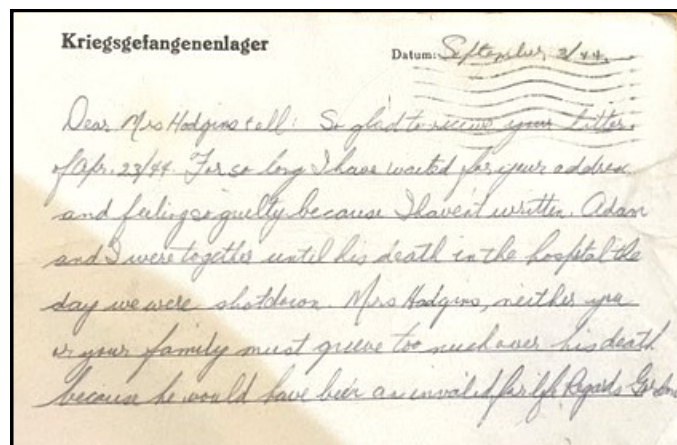 Kriegsgefangenenlager
Datum: September 3/44.
Dear Mrs Hodgins & all: So glad to receive your letter
of Apr. 23/44. For so long I have waited for your address
and feeling so guilty because I haven't written. Adam
and I were together until his death in the hospital the
day we were shotdown. Mrs Hodgins, neither you
or your family must grieve too much over his death
because he would have been an invalid for life Regards